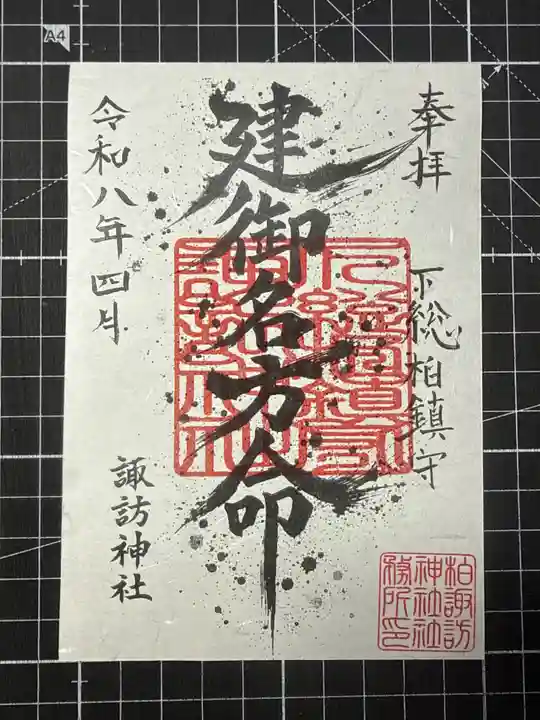 奉拝
下総柏鎮守
建御名方命
令和八年四月
諏訪神社
柏諏訪
神社社
務所印
A4